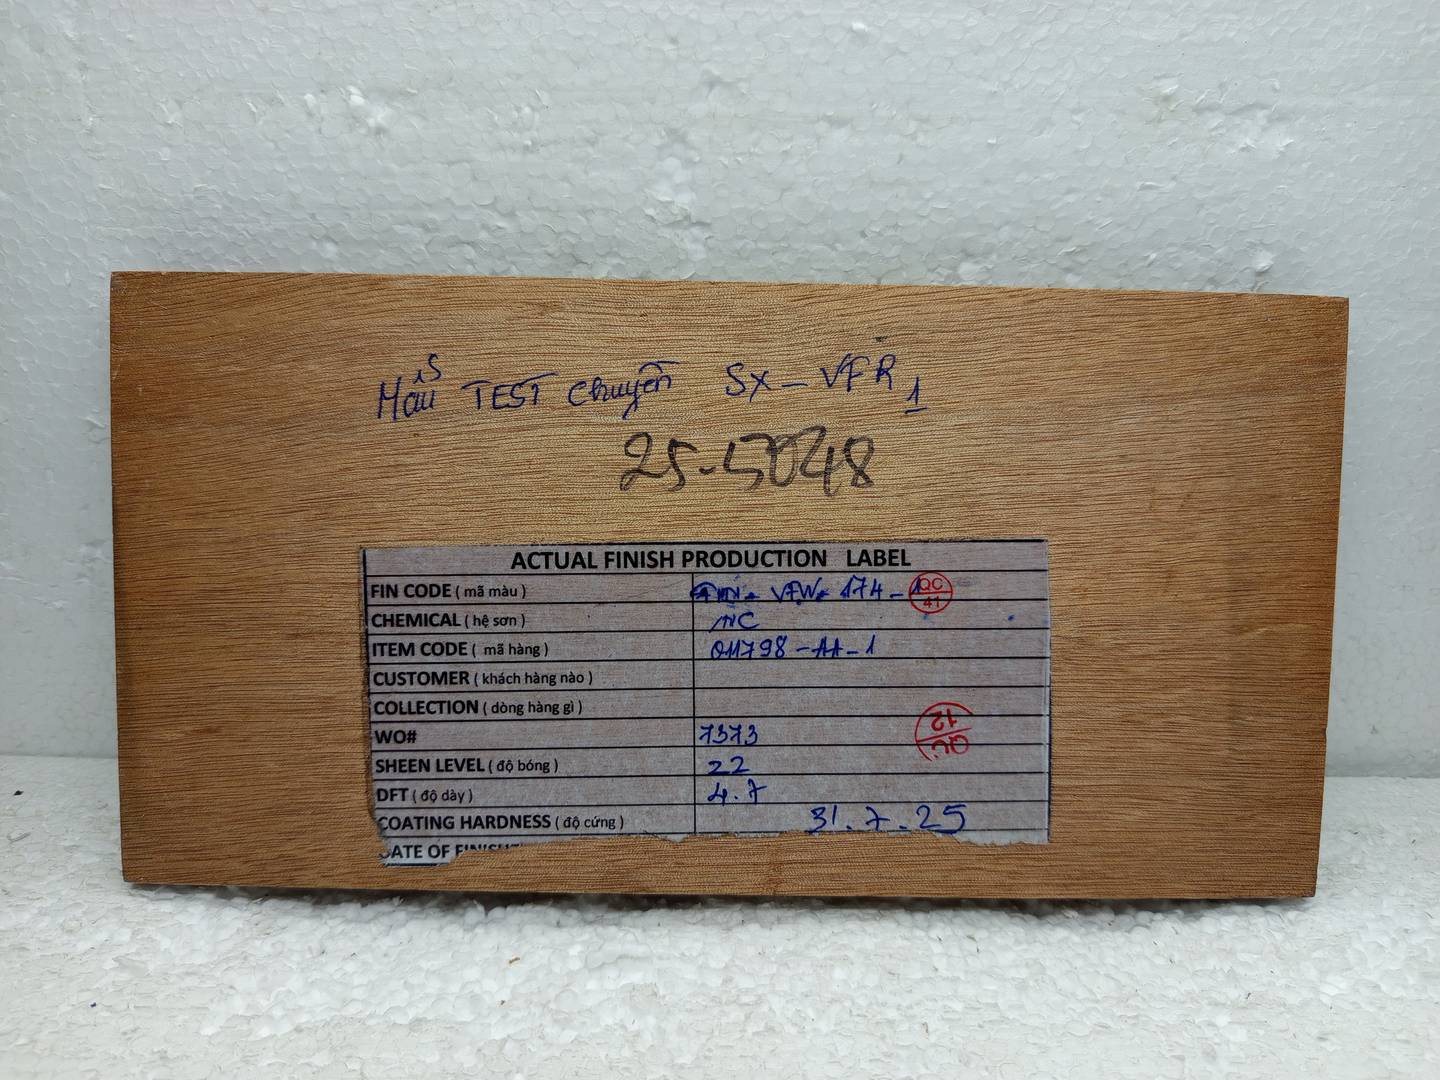 Mẫu TEST chuyền SX - VFR 1
25-5048
ACTUAL FINISH PRODUCTION LABEL
FIN CODE ( mã màu ) FIN - VFW - 174 - 1 QC 41
CHEMICAL ( hệ sơn ) NC
ITEM CODE ( mã hàng ) 011798 - AA - 1
CUSTOMER ( khách hàng nào )
COLLECTION ( dòng hàng gì )
WO# 7373 QC 12
SHEEN LEVEL ( độ bóng ) 22
DFT ( độ dày ) 4.7
COATING HARDNESS ( độ cứng ) 31.7.25
DATE OF